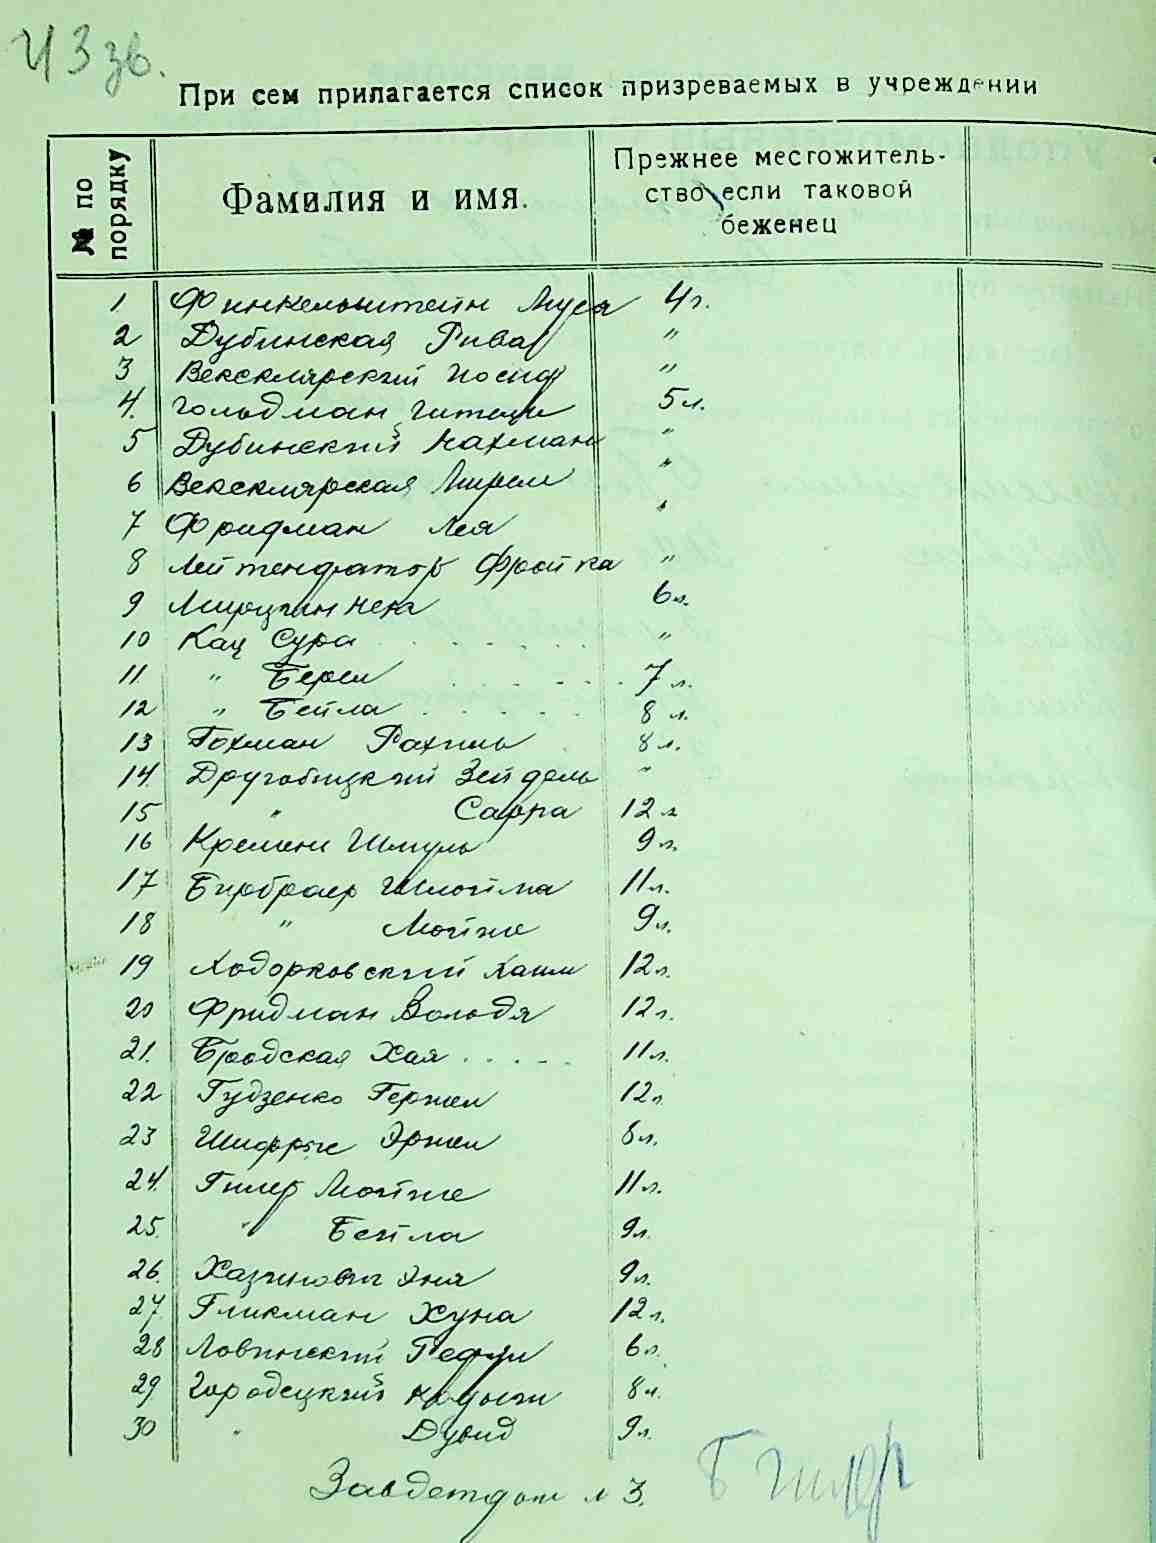 43 зв.
При сем прилагается список призреваемых в учреждении
№ по порядку
Фамилия и имя.
Прежнее месгожитель-
ство, если таковой
беженец
1 Финкельштейн Муся 4 г.
2 Дубинская Рива "
3 Векселярский Иосиф "
4. Гольдман 5 л.
5 Дубинский Нахман "
6 Векселярская Мирем "
7 Фридман Лея "
8 Фройка "
9 6 л.
10 Кац Сура "
11. " Берел 7 л.
12 " Бейла 8 л.
13 Гохман Рахиль 8 л.
14. Другобицкий Зейдель "
15 " Сарра 12 л.
16 Кремень Шмуль 9 л.
17 Бирбраер Шлойма 11 л.
18 " Мойше 9 л.
19 Ходорковский Хаим 12 л.
20 Фридман Володя 12 л.
21. Бродская Хая 11 л.
22 Гудзенко Гершел 12 л.
23 8 л.
24. Гилер Мойше 11 л.
25. " Бейла 9 л.
26. Хазинович Эня 9 л.
27. Гликман Хуна 12 л.
28 Ловинский 6 л.
29 Городецкий 8 л.
30 " Дувид 9 л.
Завдетдом № 3.